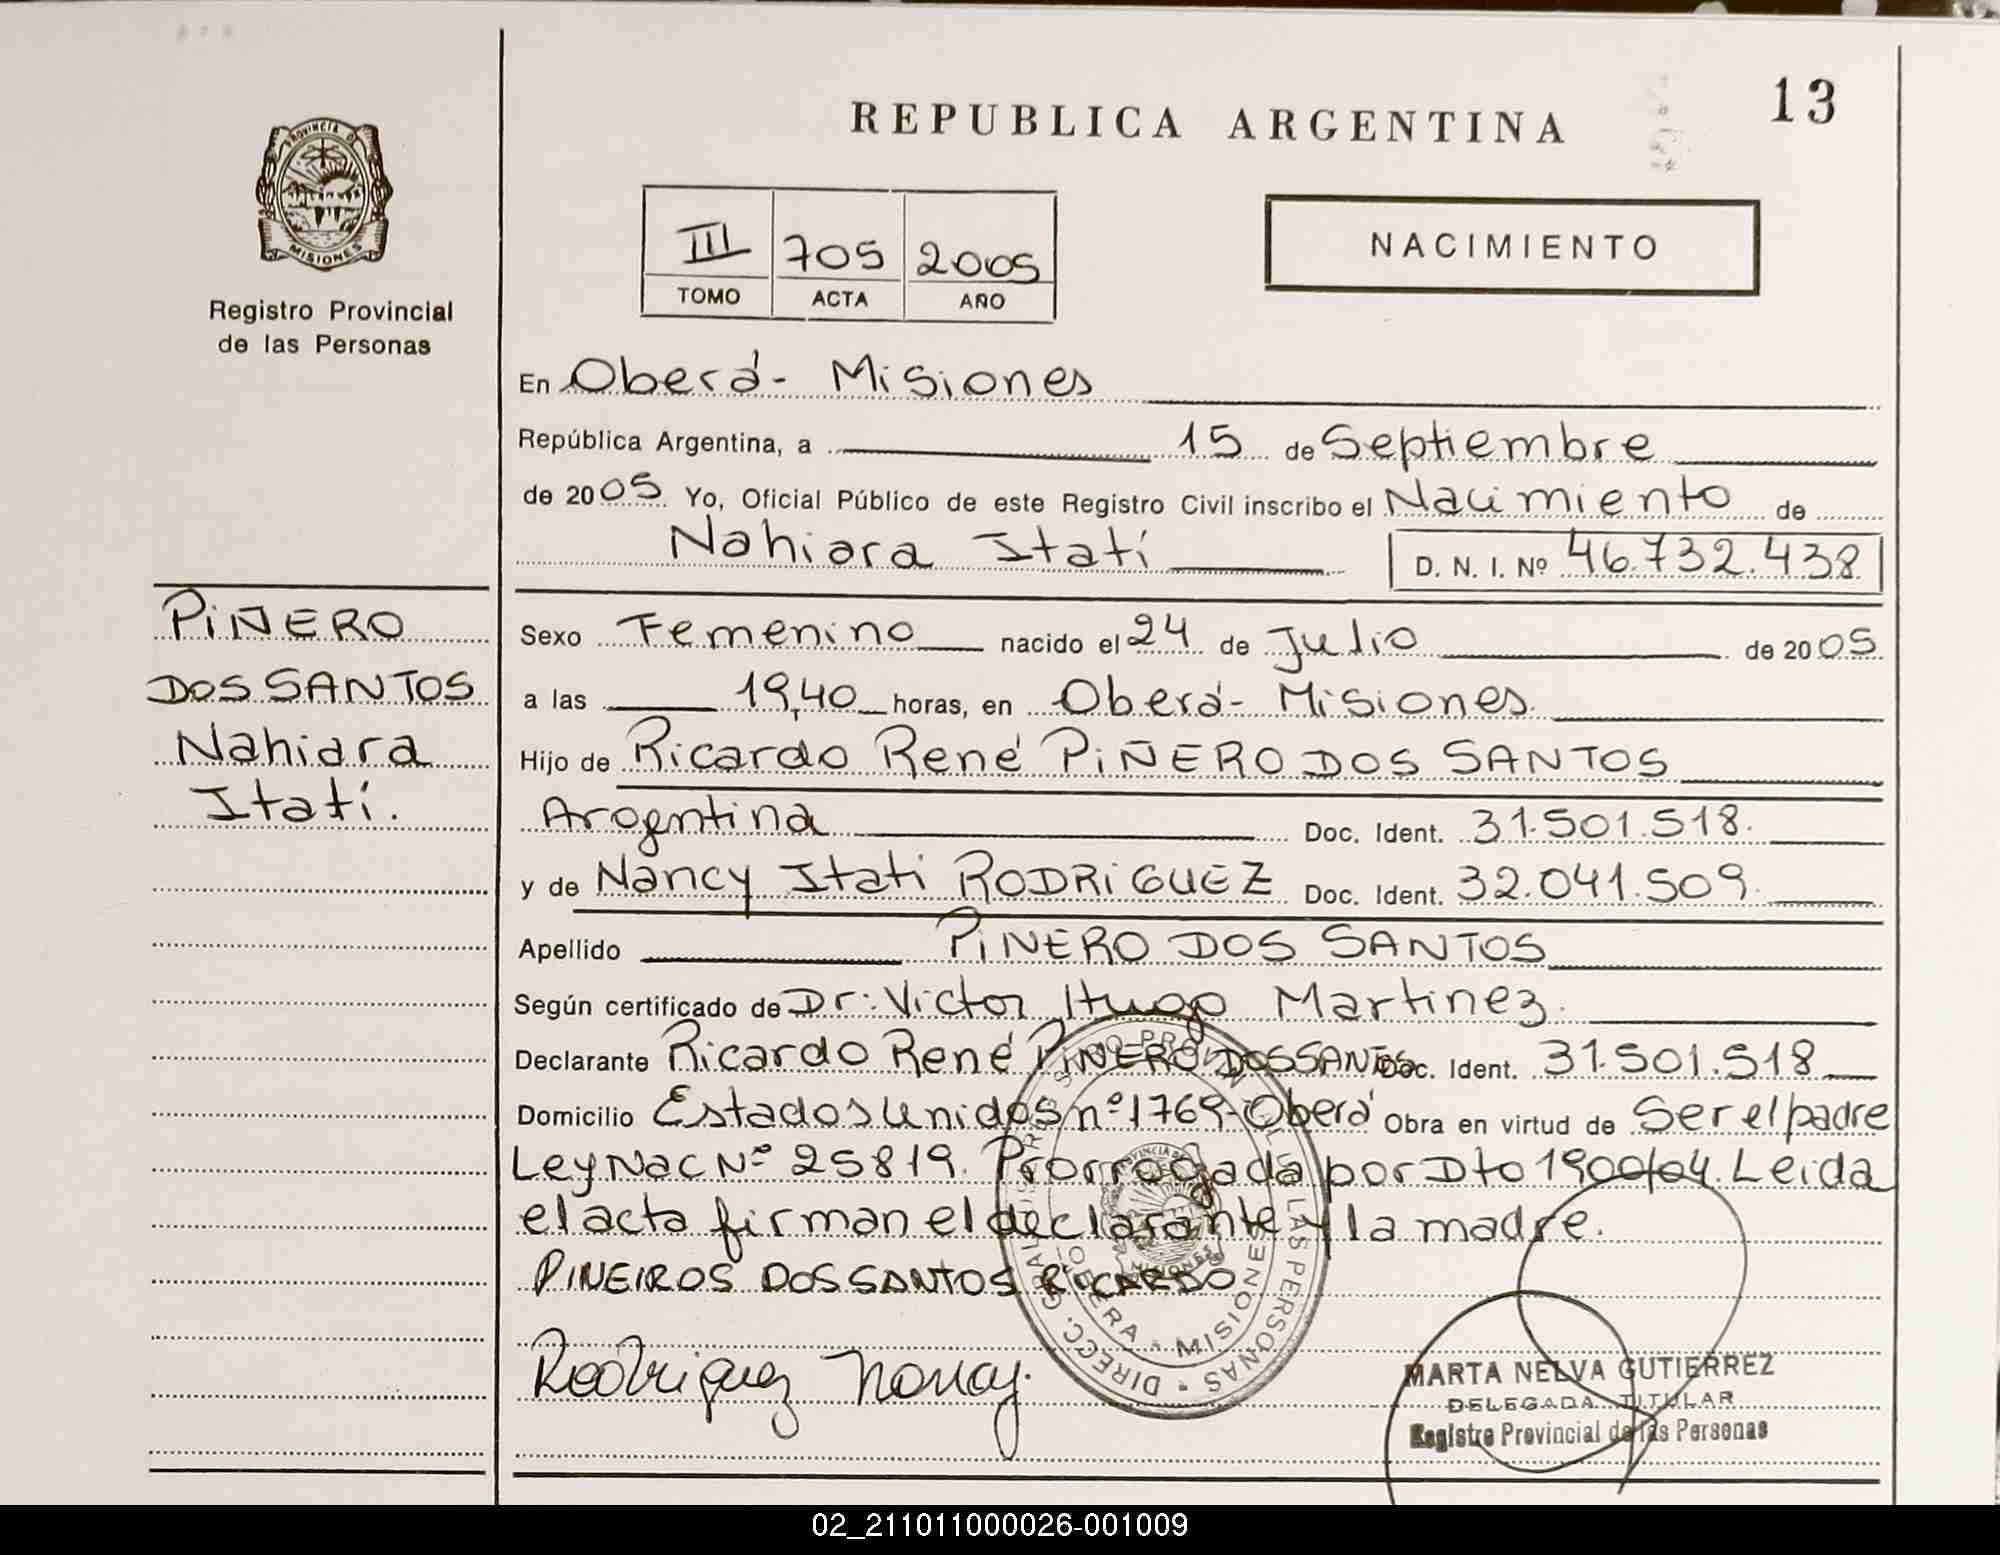 13
REPUBLICA ARGENTINA
PROVINCIA DE
MISIONES
Registro Provincial
de las Personas
III 705 2005
TOMO ACTA AÑO
NACIMIENTO
En Oberá - Misiones
República Argentina, a 15 de Septiembre
de 2005 Yo, Oficial Público de este Registro Civil inscribo el Nacimiento de
Nahiara Itatí D. N. I. Nº 46.732.438
PIÑERO
DOS SANTOS
Nahiara
Itatí.
Sexo Femenino nacido el 24 de Julio de 2005
a las 19,40 horas, en Oberá - Misiones
Hijo de Ricardo René PIÑERO DOS SANTOS
Argentina Doc. Ident. 31.501.518.
y de Nancy Itati RODRIGUEZ Doc. Ident. 32.041.509.
Apellido PIÑERO DOS SANTOS
Según certificado de Dr: Victor Hugo Martinez.
Declarante Ricardo René PIÑERO DOS SANTOS Doc. Ident. 31.501.518
Domicilio Estados Unidos nº 1769 - Oberá Obra en virtud de Ser el padre
Ley Nac Nº 25819. Prorrogada por Dto 1900/04. Leida
el acta firman el declarante y la madre.
PINEIROS DOS SANTOS RICARDO
Rodriguez Nancy.
DIRECC. GRAL. REGISTRO PROVINCIAL DE LAS PERSONAS
OBERA - MISIONES
MARTA NELVA GUTIERREZ
DELEGADA TITULAR
Registro Provincial de las Personas
02_211011000026-001009